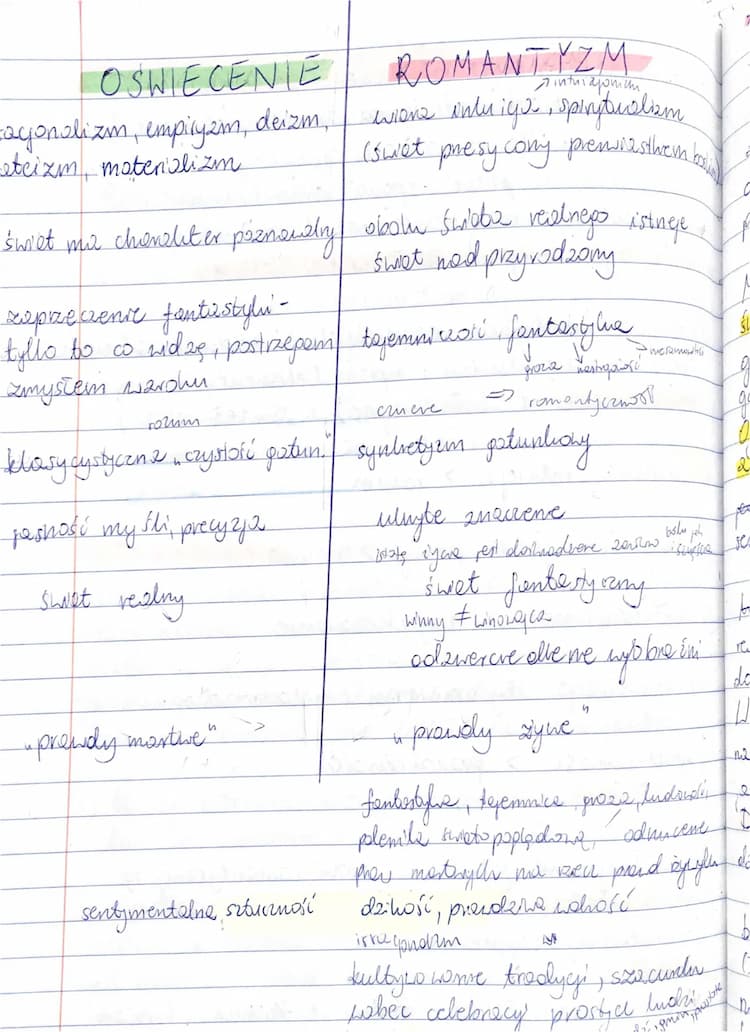 OŚWIECENIE
ROMANTYZM
intuicjonizm
racjonalizm, empiryzm, deizm,
ateizm, materializm
wiara intuicja, spirytualizm
(świat przesycony pierwiastkiem boskim)
świat ma charakter poznawalny
obok świata realnego istnieje
świat nadprzyrodzony
zaprzeczenie fantastyki -
tylko to co widzę, postrzegam
zmysłem wzroku
rozum
tajemniczość, fantastyka
groza nastrojowość niesamowitość
czucie => romantyczność
klasycystyczna „czystość gatun."
synkretyzm gatunkowy
jasność myśli, precyzja
ukryte znaczenie
istotą życia jest doświadczenie zarówno bólu jak
i szczęścia
świat realny
świat fantastyczny
winny ≠ winowajca
odzwierciedlenie wyobraźni
„prawdy martwe"
„prawdy żywe"
fantastyka, tajemnica, groza, ludowość
polemika światopoglądowa, odrzucenie
praw martwych na rzecz prawd żywych
sentymentalna, sztuczność
dzikość, prawdziwa wolność
irracjonalizm
kultywowanie tradycji, szacunek
wobec celebracji prostych ludzi